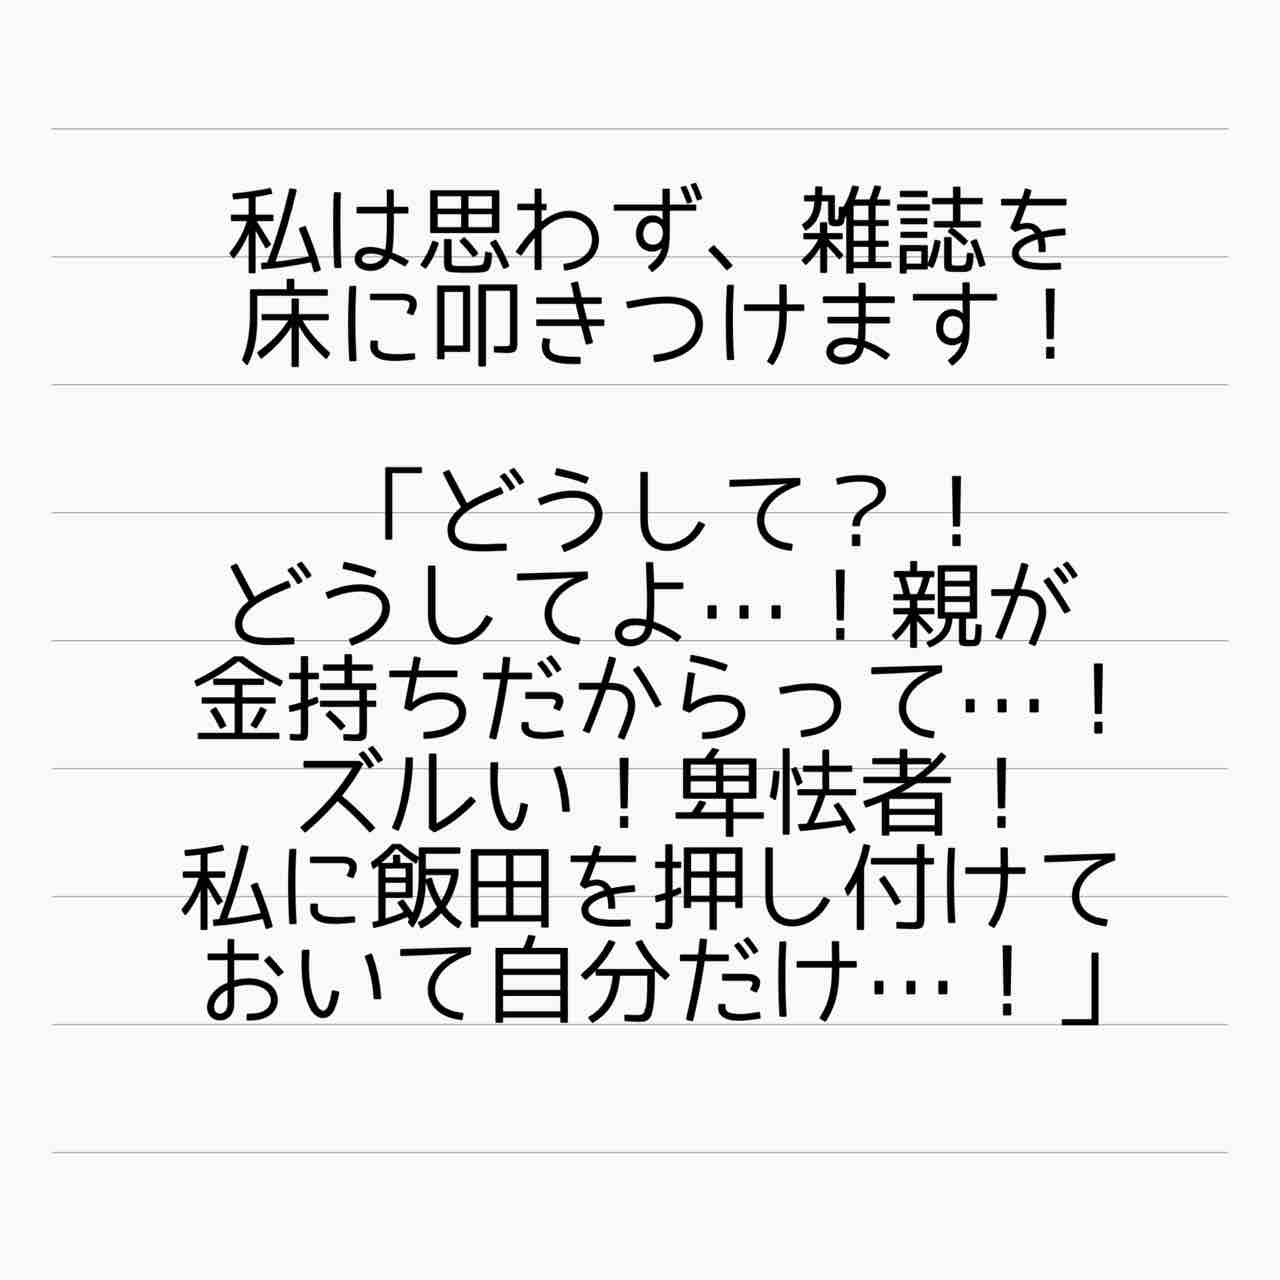 私は思わず、雑誌を
床に叩きつけます！
「どうして？！
どうしてよ…！親が
金持ちだからって…！
ズルい！卑怯者！
私に飯田を押し付けて
おいて自分だけ…！」